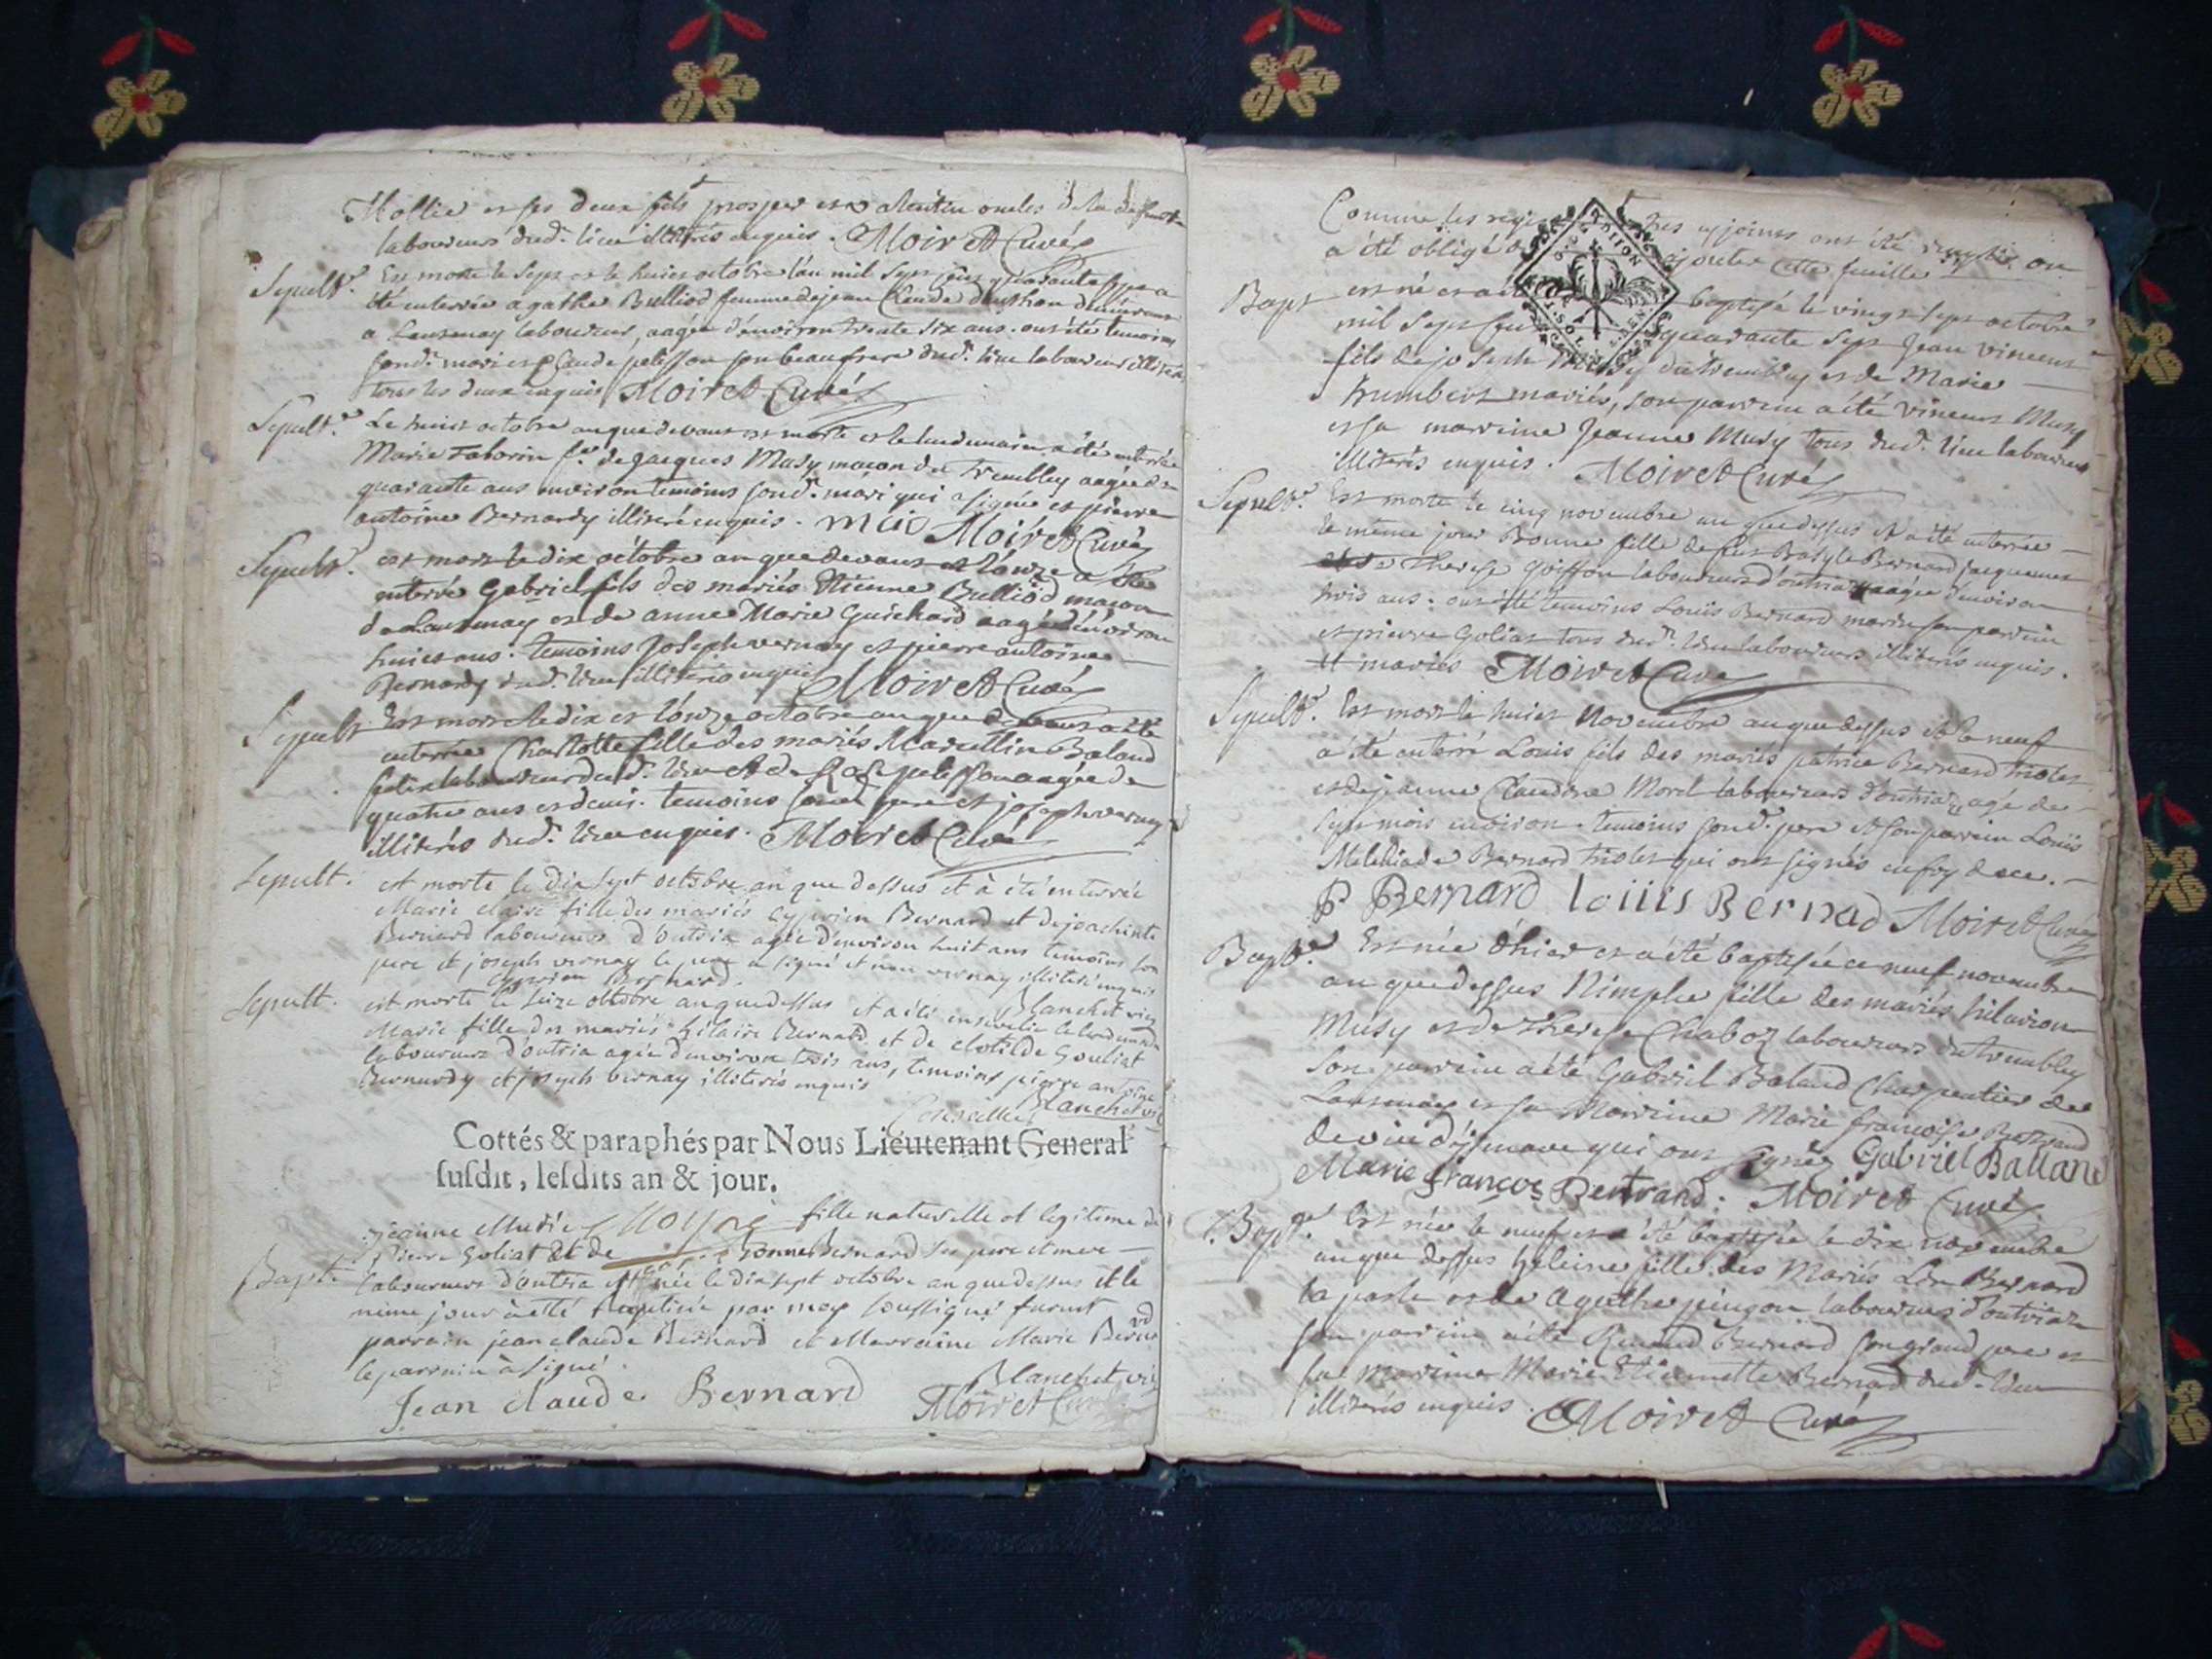 Mollie et ses deux fils prosper et valentin oncles de la defunte
laboureurs dud. lieu illiterés enquis. Moiret Curé
Sepult.r Est morte le sept et le huict octobre l'an mil sept cent quarante sept a
été enterrée agathe Bulliod femme de jean Claude
a Lansenay laboureur, aagée d'environ trente six ans. ont été temoins
sond. mari et Claude pelisson son beaufrere dud. lieu laboureur illiterés
tous les deux enquis Moiret Curé
Sepult.r Le huict octobre an que devant est morte et le lendemain a été enterrée
Marie Taborin f.e de jacques Musy macon du Trembley aagée de
quarante ans environ temoins sond. mari qui a signé et pierre
antoine Bernardy illiteré enquis. Moiret Curé
Sepult.r est mort le dix octobre an que devant et l'onze a été
enterré Gabriel fils des mariés Etienne Bulliod macon
de Lansenay et de anne Marie Guichard aagé d'environ
huict ans. temoins Joseph vernay et pierre antoine
Bernardy dud. lieu illiterés enquis Moiret Curé
Sepult.r Est morte le dix et l'onze octobre an que devant a été
enterrée Charlotte fille des mariés Marcellin Baland
laboureur dud. lieu et de pelisson aagée de
quatre ans et demi. temoins sond. pere et joseph vernay
illiterés dud. lieu enquis. Moiret Curé
Sepult. est morte le dix sept octobre an que dessus et à été enterrée
Marie claire fille des mariés Cyprien Bernard et de joachinte
Bernard laboureurs d'outria agée d'environ huit ans temoins son
pere et joseph vernay le pere a signé et non vernay illiteré enquis
Cyprien Bernard. Blanchet vic.
Sepult. est morte le seize octobre an que dessus et a été ensevelie le lendemain
Marie fille des mariés hilaire Bernard et de clotilde Gouliat
laboureurs d'outria agée d'environ trois ans, temoins pierre antoine
Bernardy et joseph vernay illiterés enquis
Blanchet vic
Cottés & paraphés par Nous Lieutenant General
susdit, lesdits an & jour.
jeanne Marie fille naturelle et legitime de
Pierre Goliat et de Bonne Bernard ses pere et mere
Bapt. laboureurs d'outria est née le dix sept octobre an que dessus et le
même jour à été baptisée par moy soussigné furent
parrain jean claude Bernard et Marraine Marie Bernard
le parrain à signé.
Jean claude Bernard Blanchet vic
Moiret Curé
Comme les ont été remplis on
a été obligé ajouter cette feuille
Bapt est né et a baptisé le vingt sept octobre
mil sept cent quarante sept Jean vincent
fils de joseph Musy du trembley et de Marie
humbert mariés, son parrain a été vincent Musy
et sa marrime Jeanne Musy tous dud. lieu laboureurs
illiterés enquis. Moiret Curé
Sepult.r Est morte le cinq novembre an que dessus et a été enterrée
le même jour Bonne fille de feu Basyle Bernard jacquemet
Therese Goiffon laboureurs d'outria aagée d'environ
trois ans. ont été temoins Louis Bernard marin son parrain
et pierre Goliat tous dud. lieu laboureurs illiterés enquis.
mariés Moiret Curé
Sepult.r Est mort le huict Novembre an que dessus et le neuf
a été enterré Louis fils des mariés patrice Bernard triolet
et de jeanne Claudine Morel laboureurs d'outria agé de
sept mois environ. temoins sond. pere et son parrain Louis
Bernard triolet qui ont signés en foy de ce.
P Bernard loiiis Bernad Moiret Curé
Bapt.e Est née d'hier et a été baptisée ce neuf novembre
an que dessus Nimphe fille des mariés hilarion
Musy et de Therese Chaboz laboureurs du trembley
son parrain a été Gabriel Baland Charpentier de
Lansenay et sa Marrime Marie françoise Bertrand
qui ont signés Gabriel Balland
Marie françoe Bertrand: Moiret Curé
Bapt.e Est née le neuf et a été baptisée le dix novembre
an que dessus heleine fille des Mariés Bernard
et de Agathe pingon laboureurs d'outria
son parrain a été Renaud Bernard son grand pere et
sa Marrime Marie Etiennette Bernard dud. lieu
illiterés enquis. Moiret Curé